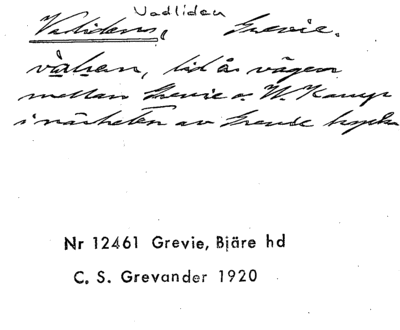 Vadliden
Validens, Grevie.
vägen
mellan Grevie o. V. Karup
i närheten av Grevie kyrka
Nr 12461 Grevie, Bjäre hd
C. S. Grevander 1920